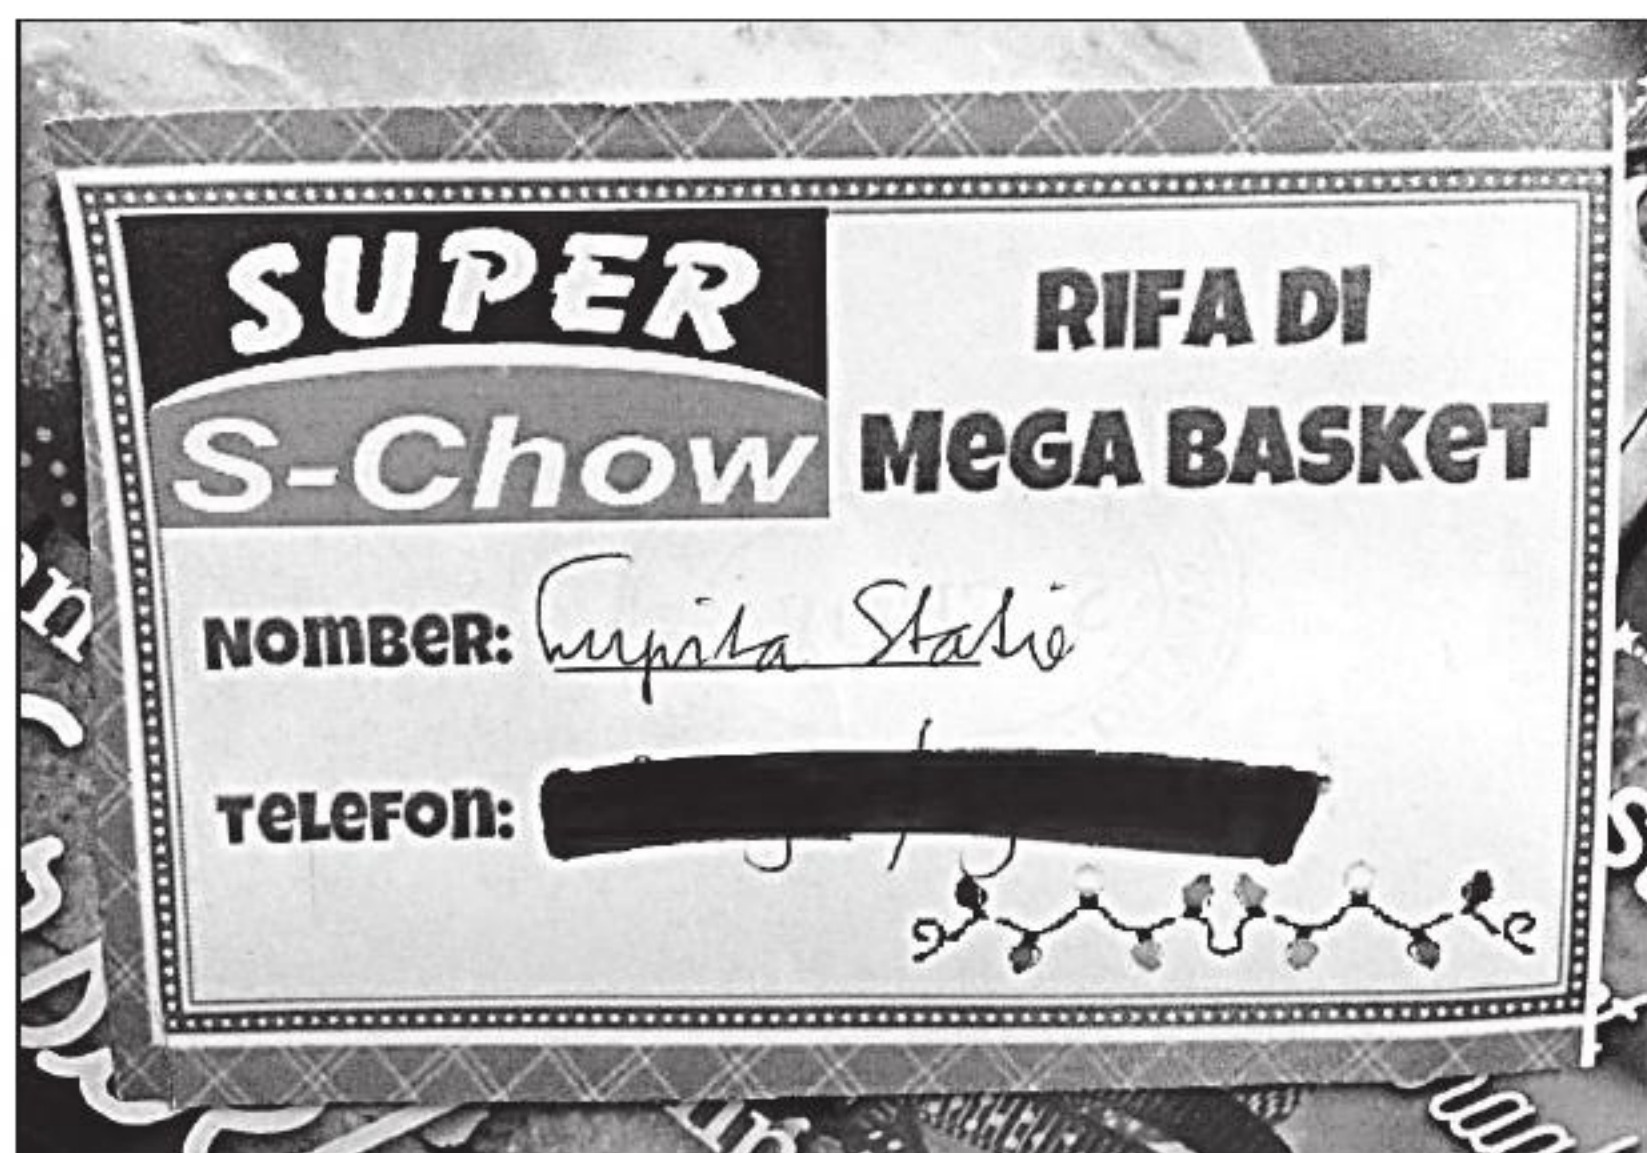 SUPER
S-Chow
RIFA DI
MEGA BASKET
NOMBER: Lupita Statie
TELEFON: